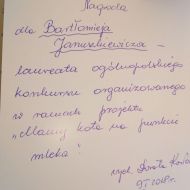 Nagroda
dla Bartłomieja
Januszkiewicza –
laureata ogólnopolskiego
konkursu organizowanego
w ramach projektu
„Mamy kota na punkcie
mleka”.
wych. Dorota
9 I 2018 r.